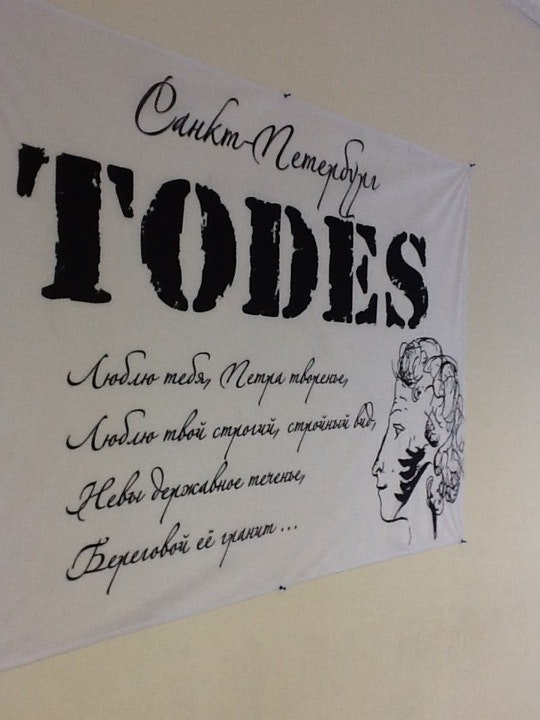 Санкт-Петербург
TODES
Люблю тебя, Петра творенье,
Люблю твой строгий, стройный вид,
Невы державное теченье,
Береговой её гранит...